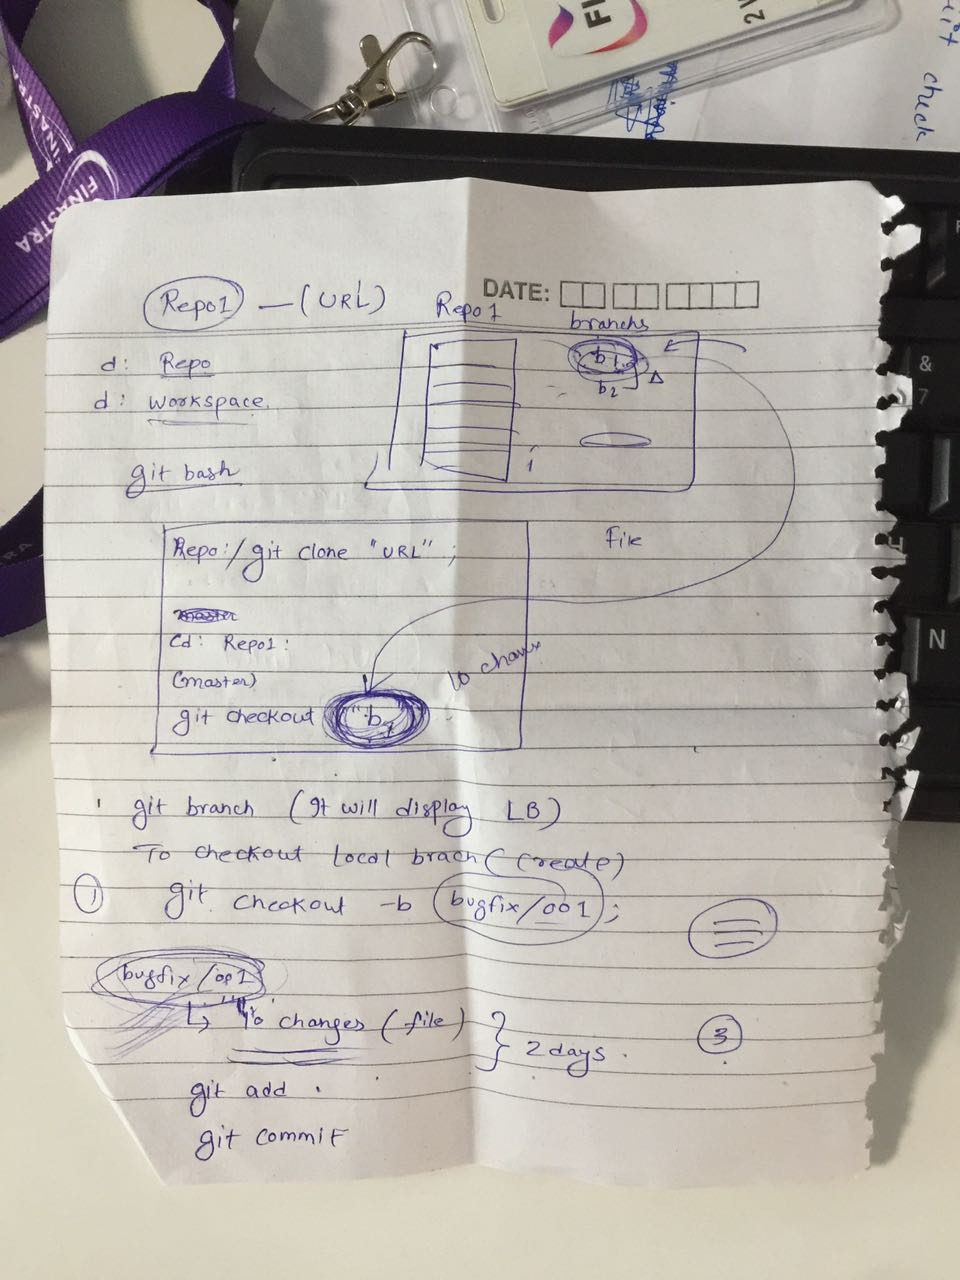 FINASTRA
FINASTRA
check
Repo1 — (URL)
DATE:
Repo 1
branchs
b1
b2
d: Repo
d: workspace.
git bash
1
file
Repo:/git clone "URL";
master
Cd: Repo1:
(master)
git checkout "b1
to
git branch (It will display LB)
To checkout local brach (create)
1 git checkout -b bugfix/001;
bugfix/001
↳ 10 changes (file) } 2 days.
3
git add .
git commit
&
7
N